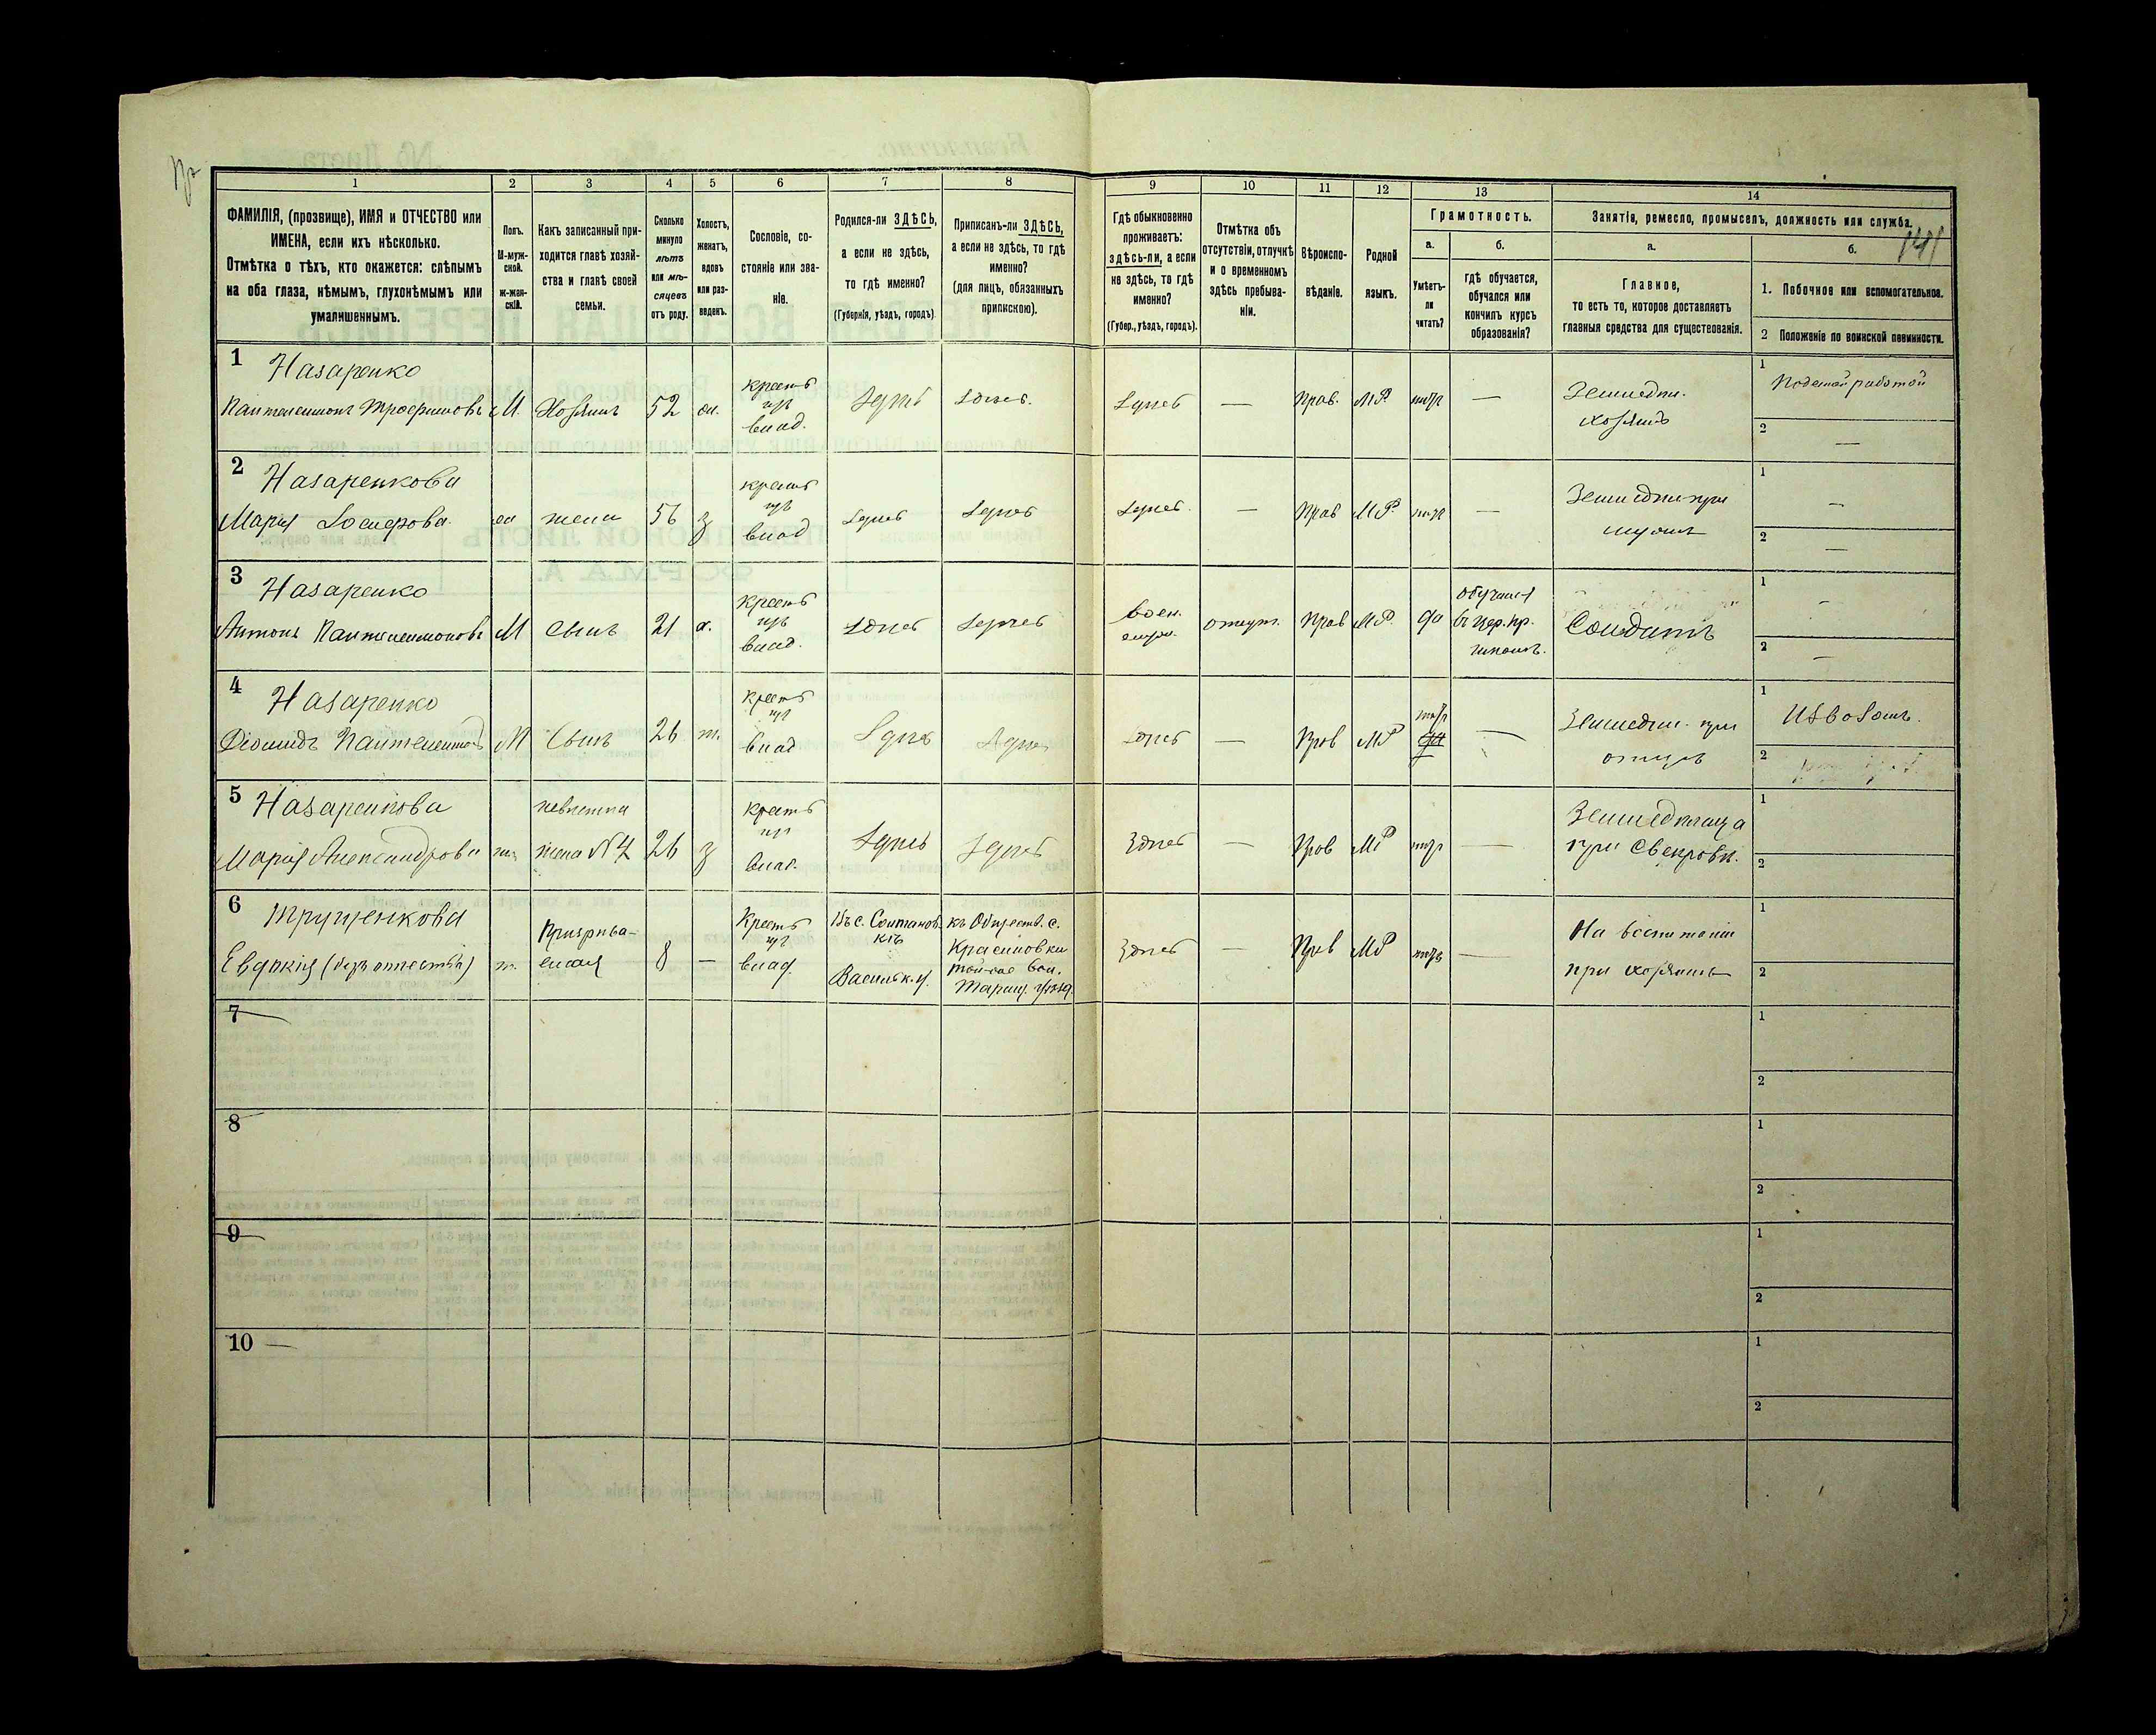 141
1 2 3 4 5 6 7 8 9 10 11 12 13 14
ФАМИЛІЯ, (прозвище), ИМЯ и ОТЧЕСТВО или
ИМЕНА, если ихъ нѣсколько.
Отмѣтка о тѣхъ, кто окажется: слѣпымъ
на оба глаза, нѣмымъ, глухонѣмымъ или
умалишеннымъ.
Полъ.
М-муж-
ской.
ж-жен-
скій.
Какъ записанный при-
ходится главѣ хозяй-
ства и главѣ своей
семьи.
Сколько
минуло
лѣтъ
или мѣ-
сяцевъ
отъ роду.
Холостъ,
женатъ,
вдовъ
или раз-
веденъ.
Сословіе, со-
стояніе или зва-
ніе.
Родился-ли ЗДѢСЬ,
а если не здѣсь,
то гдѣ именно?
(Губернія, уѣздъ, городъ).
Приписанъ-ли ЗДѢСЬ,
а если не здѣсь, то гдѣ
именно?
(для лицъ, обязанныхъ
припискою).
Гдѣ обыкновенно
проживаетъ:
здѣсь-ли, а если
не здѣсь, то гдѣ
именно?
(Губер., уѣздъ, городъ).
Отмѣтка объ
отсутствіи, отлучкѣ
и о временномъ
здѣсь пребыва-
ніи.
Вѣроиспо-
вѣданіе.
Родной
языкъ.
Грамотность.
а.
Умѣетъ-
ли
читать?
б.
гдѣ обучается,
обучался или
кончилъ курсъ
образованія?
Занятія, ремесло, промыселъ, должность или служба.
а.
Главное,
то есть то, которое доставляетъ
главныя средства для существованія.
б.
1. Побочное или вспомогательное.
2 Положеніе по воинской повинности.
1 Назаренко
Пантелеимонъ Трофимовъ М. Хозяинъ 52 ж. крест. изъ влад. Здѣсь Здѣсь. Здѣсь — Прав. МР. нѣтъ — Земледѣл. хозяинъ
1 Поденной работой
2 —
2 Назаренкова
Марія жена 56 з крест. изъ влад Здѣсь Здѣсь Здѣсь. — Прав МР. нѣтъ — Земледѣл при мужѣ
1 —
2 —
3 Назаренко
Антонъ Пантелеимоновъ М сынъ 21 х. крест. изъ влад. Здѣсь Здѣсь Воен. служ. отлуч. Прав МР. да обучался въ цер. пр. школѣ. Солдатъ
1 –
2 –
4 Назаренко
Діомидъ Пантелеимонов М Сынъ 26 ж. крест. изъ влад Здѣсь Здѣсь Здѣсь — Прав МР нѣтъ да — Земледѣл. при отцѣ
1 Извозомъ.
2
5 Назаренкова
Марія Александрова ж. невѣстка жена №4 26 з крест. изъ влад. Здѣсь Здѣсь Здѣсь — Прав МР нѣтъ — Земледѣлица при Свекрови.
1
2
6 Трущенкова
Евдокія (безъ отчества) ж. Призрѣва- емая 8 — Крест. изъ влад. Въ с. Солтанов- кѣ Васильк. у. къ Обществ. с. Красиловки вол. Таращ. уѣзд. Здѣсь — Прав МР нѣтъ — На воспитаніи при хозяинѣ
1
2
7
1
2
8
1
2
9
1
2
10 —
1
2